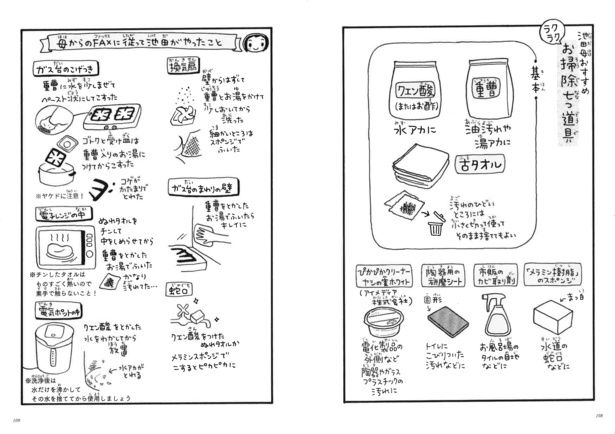 池田母おすすめ
ラクラク
お掃除七つ道具
基本
クエン酸
(またはお酢)
水アカに
重曹
油汚れや
湯アカに
古タオル
汚れのひどい
ところには
小さく切って使って
そのまま捨ててもよい
ぴかぴかクリーナー
ヤシの実ホワイト
(アイメディア
株式会社)
電化製品の
外側など
陶器やガラス
プラスチックの
汚れに
陶器用の
研磨シート
固形
トイレに
こびりついた
汚れなどに
市販の
カビ取り剤
お風呂場の
タイルの目地
などに
「メラミン樹脂」
のスポンジ
まっ白
水道の
蛇口
などに
108
母からのFAXに従って池田がやったこと
ガス台のこげつき
重曹に水を少しまぜて
ペースト状にしてこすった
ゴトクと受け皿は
重曹入りのお湯に
つけてからこすった
コゲが
かたまりで
とれた
※ヤケドに注意!
換気扇
壁からはずして
重曹とお湯をかけて
少しおいてから
洗った
細かいところは
スポンジで
ふいた
ガス台のまわりの壁
重曹をとかした
お湯でふいたら
キレイに
電子レンジの中
ぬれタオルを
チンして
中をしめらせてから
重曹をとかした
お湯でふいた
かなり
汚れてた…
※チンしたタオルは
ものすごく熱いので
素手で触らないこと!
蛇口
クエン酸をつけた
ぬれタオルか
メラミンスポンジで
こするとピカピカに
電気ポットの中
クエン酸をとかした
水をわかしてから
放置
水アカが
とれる
※洗浄後は
水だけを沸かして
その水を捨ててから使用しましょう
109